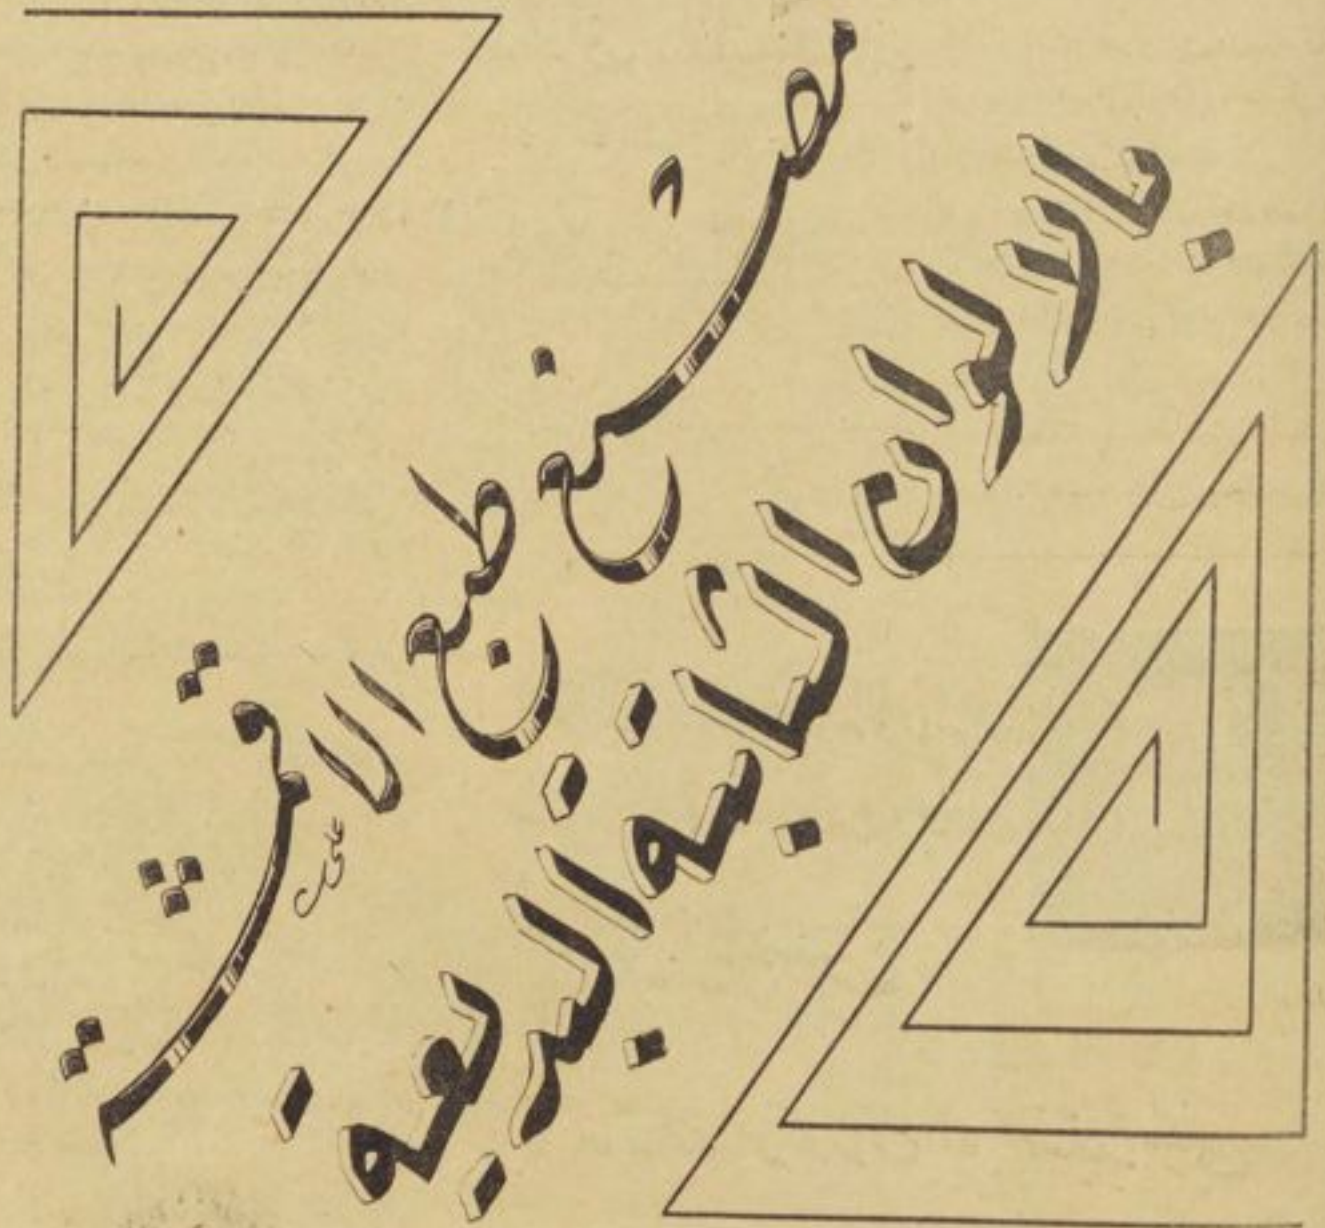 مصنع طبع الاقمشة
بالالوان الثابتة البديعة